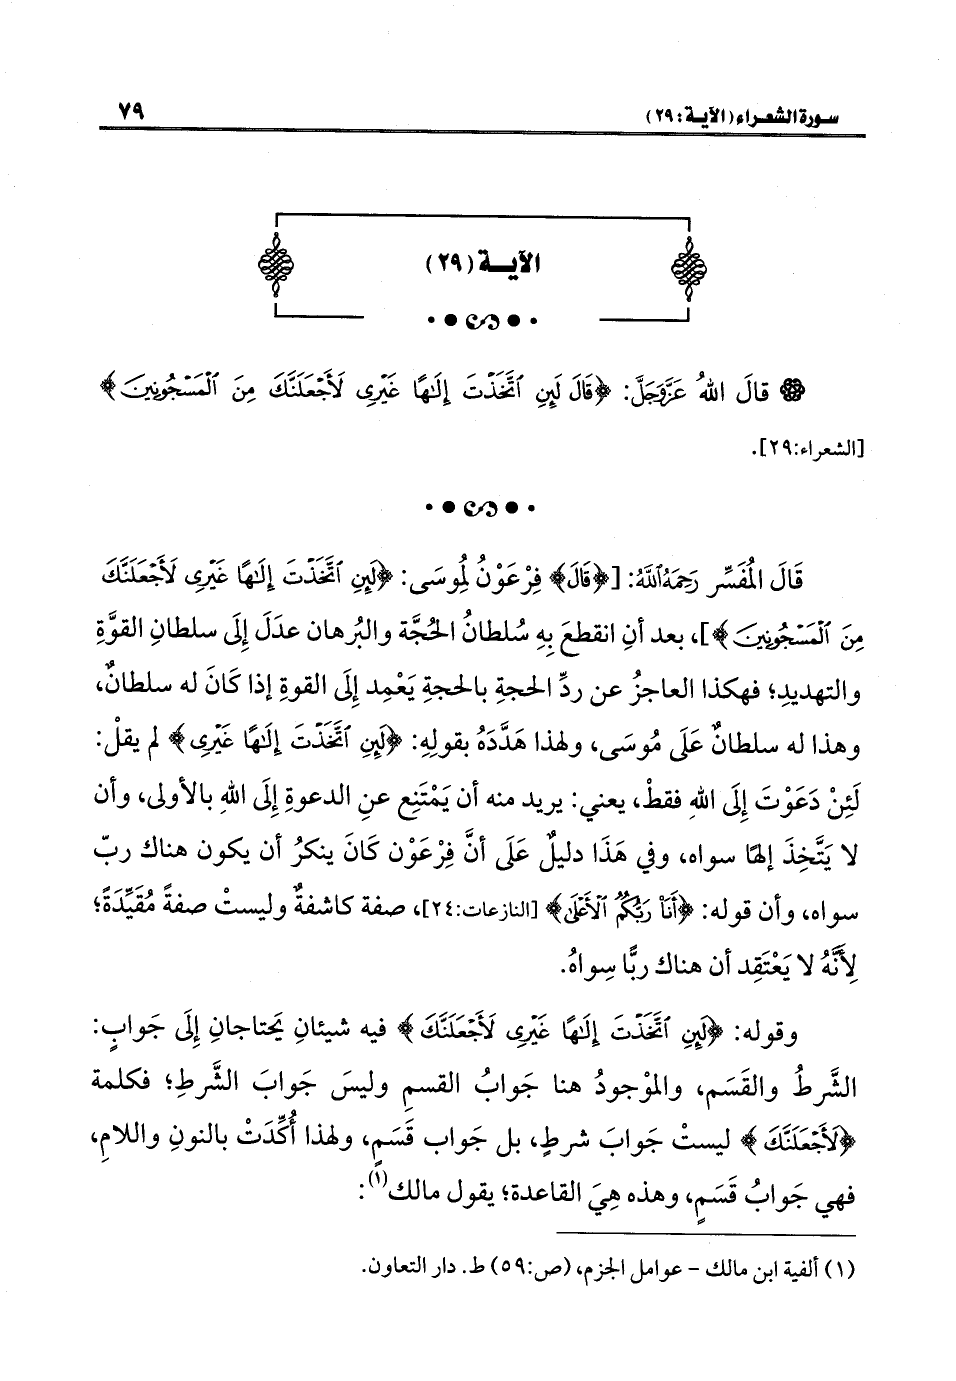 سورة الشعراء (الآية: ٢٩)
٧٩
الآيــة (٢٩)
قالَ اللهُ عَزَّوَجَلَّ: ﴿قَالَ لَئِنِ ٱتَّخَذْتَ إِلَٰهًا غَيْرِى لَأَجْعَلَنَّكَ مِنَ ٱلْمَسْجُونِينَ﴾
[الشعراء:٢٩].
قَالَ المُفَسِّر رَحِمَهُ اللَّهُ: [﴿قَالَ﴾ فِرْعَوْنُ لِمُوسَى: ﴿لَئِنِ ٱتَّخَذْتَ إِلَٰهًا غَيْرِى لَأَجْعَلَنَّكَ
مِنَ ٱلْمَسْجُونِينَ﴾]، بعد أنِ انقطعَ بِهِ سُلطانُ الحُجَّة والبُرهان عدَلَ إِلَى سلطانِ القوَّةِ
والتهديدِ؛ فهكذا العاجزُ عن ردِّ الحجةِ بالحجةِ يَعْمِد إِلَى القوةِ إذا كَانَ له سلطانٌ،
وهذا له سلطانٌ عَلَى مُوسَى، ولهذا هَدَّدَهُ بقولِهِ: ﴿لَئِنِ ٱتَّخَذْتَ إِلَٰهًا غَيْرِى﴾ لم يقلْ:
لَئِنْ دَعَوْتَ إِلَى اللهِ فقطْ، يعني: يريد منه أن يَمْتَنِع عنِ الدعوةِ إِلَى اللهِ بالأولى، وأن
لا يَتَّخِذَ إلهًا سواه، وفي هَذَا دليلٌ عَلَى أنَّ فِرْعَوْن كَانَ ينكرُ أن يكون هناك ربّ
سواه، وأن قوله: ﴿أَنَا۠ رَبُّكُمُ ٱلْأَعْلَىٰ﴾ [النازعات:٢٤]، صفة كاشفةٌ وليستْ صفةً مُقَيِّدَةً؛
لِأَنَّهُ لا يَعْتَقِد أن هناك ربًّا سِواهُ.
وقوله: ﴿لَئِنِ ٱتَّخَذْتَ إِلَٰهًا غَيْرِى لَأَجْعَلَنَّكَ﴾ فيه شيئانِ يَحتاجانِ إِلَى جَوابٍ:
الشَّرطُ والقَسَم، والمَوْجودُ هنا جَوابُ القسمِ وليسَ جَوابَ الشَّرطِ؛ فكلمة
﴿لَأَجْعَلَنَّكَ﴾ ليستْ جَوابَ شرطٍ، بل جَواب قَسَمٍ، ولهذا أُكِّدَتْ بالنونِ واللامِ،
فهي جَوابُ قَسَمٍ، وهذه هِيَ القاعدة؛ يقول مالك(١):
(١) ألفية ابن مالك - عوامل الجزم، (ص:٥٩) ط. دار التعاون.